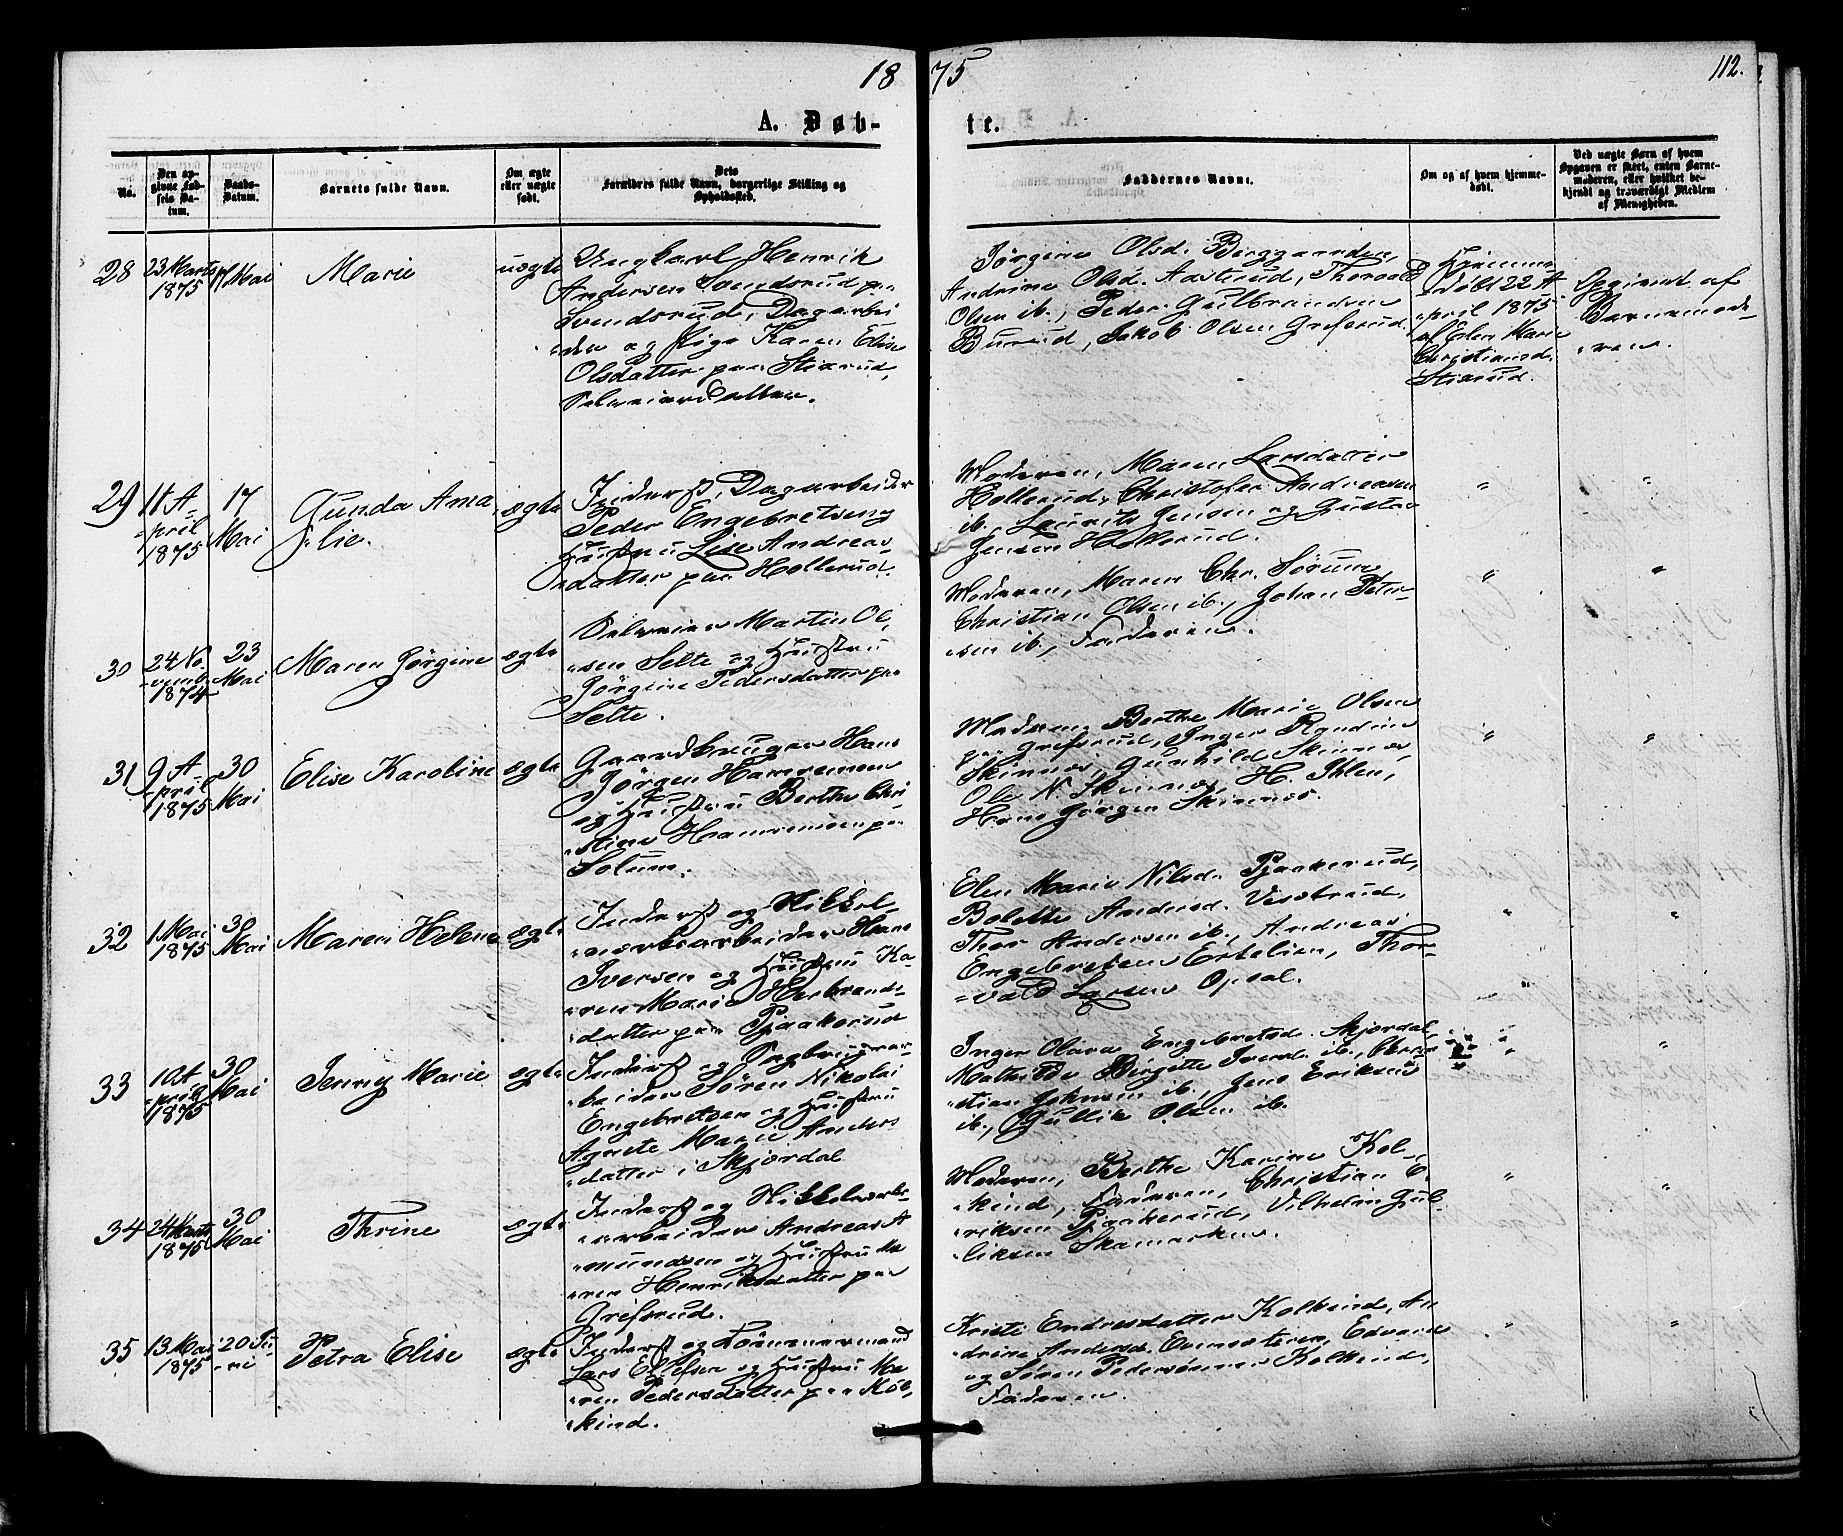 1875
112.
A. Døbte.
No.
Den opgivne Fødsels Datum.
Daabs-Datum.
Barnets fulde Navn.
Om ægte eller uægte født.
Dets Forældres fulde Navn, borgerlige Stilling og Opholdssted.
Faddernes Navne.
Om og af hvem hjemmedøbt.
Ved uægte Børn af hvem Opgaven er skeet, enten Barnemoderen, eller hvilket bekjendt og troværdigt Medlem af Menigheden.
28
23 Marts
1875
17 Mai
Marie
uægte
Ungkarl Henrik
Andersen Svendsrud paa
Svendsrud, Dagarbei
-der og Pige Karen Elise
Olsdatter paa Stixrud,
Selveierdatter.
Jørgine Olsd. Berggarden,
Andrine Olsd. Aastrud, Thorvald
Olsen ib., Peder Gulbrandsen
Burud, Jakob Olsen Grefsrud.
Hjemme-
døbt 22 A
-pril 1875
af Elen Marie
Christiansd.
Stixrud.
Opgivet af
Barnemode-
-ren.
29
18 A-
-pril
1875
17
Mai
Gunda Ama
-lie.
ægte
Inderst, Dagarbeider
Peder Engebretsen og
Hustru Lise Andreas-
-datter paa Hollerud.
Moderen, Maren Larsdatter
Hollerud, Christofer Andreasen
ib., Laurits Jensen og Gustav
Jensen Hollerud.
"
"
30
24 No-
-vemb.
1874
23
Mai
Maren Jørgine
ægte
Selveier Martin Ol-
-sen Selte og Hustru
Jørgine Pedersdatter paa
Selte.
Moderen, Maren Chr. Sørum,
Christian Olsen ib., Johan Peter-
-sen ib., Faderen.
"
"
31
9 A-
-pril
1875
30
Mai
Elise Karoline
ægte
Gaardbruger Hans
Jørgen Hansemoen
og Hustru Berthe Chri-
-stine Hansemoen paa
Solum.
Moderen, Berthe Marie Olsen
paa Grefsrud, Inger Randine
Skinnes, Gunhild Skinnes,
Ole N. Skinnes, H. Ihlen,
Hans Jørgen Skinnes.
"
"
32
1 Mai
1875
30
Mai
Maren Helene
ægte
Inderst og Nikkel-
-værksarbeider Hans
Iversen og Hustru Ka-
-ren Marie Herbrands-
-datter paa Pjaakerud
Elen Marie Nilsd. Pjaakerud,
Bolette Andersd. Vestrud,
Thor Andersen ib., Andreas
Engebretsen Ertelien, Thor-
-vald Larsen Opsal.
"
"
33
10 A-
-pril
1875
30
Mai
Jenny Marie
ægte
Inderst og Sagbrugsar-
-beider Søren Nikolai
Engebretsen og Hustru
Agnete Marie Anders-
-datter i Skjørdal
Inger Olava Engebretsd. Skjørdal,
Mathilde Birgitte Iversd. ib., Chri-
-stian Johnsen ib., Jens Eriksen
ib., Gullik Olsen ib.
"
"
34
24 Marts
1875
30
Mai
Thrine
ægte
Inderst og Nikkelværks-
-arbeider Andreas A-
-mundsen og Hustru Ma-
-ren Henriksdatter paa
Grefsrud.
Moderen, Berthe Karine Kol-
-kind, Faderen, Christian E-
-riksen Pjaakerud, Vilhelm Gul-
-liksen Skamarken.
"
"
35
13 Mai
1875
20 Ju-
-ni
Petra Elise
ægte
Inderst og Tømmermand
Lars Ellefsen og Hustru Ma-
-ren Pedersdatter paa Kol-
-kind.
Kristi Endresdatter Kolkind, An-
-drine Andersd. Evensteren, Edvard
og Søren Pedersønner Kolkind,
Faderen.
"
"